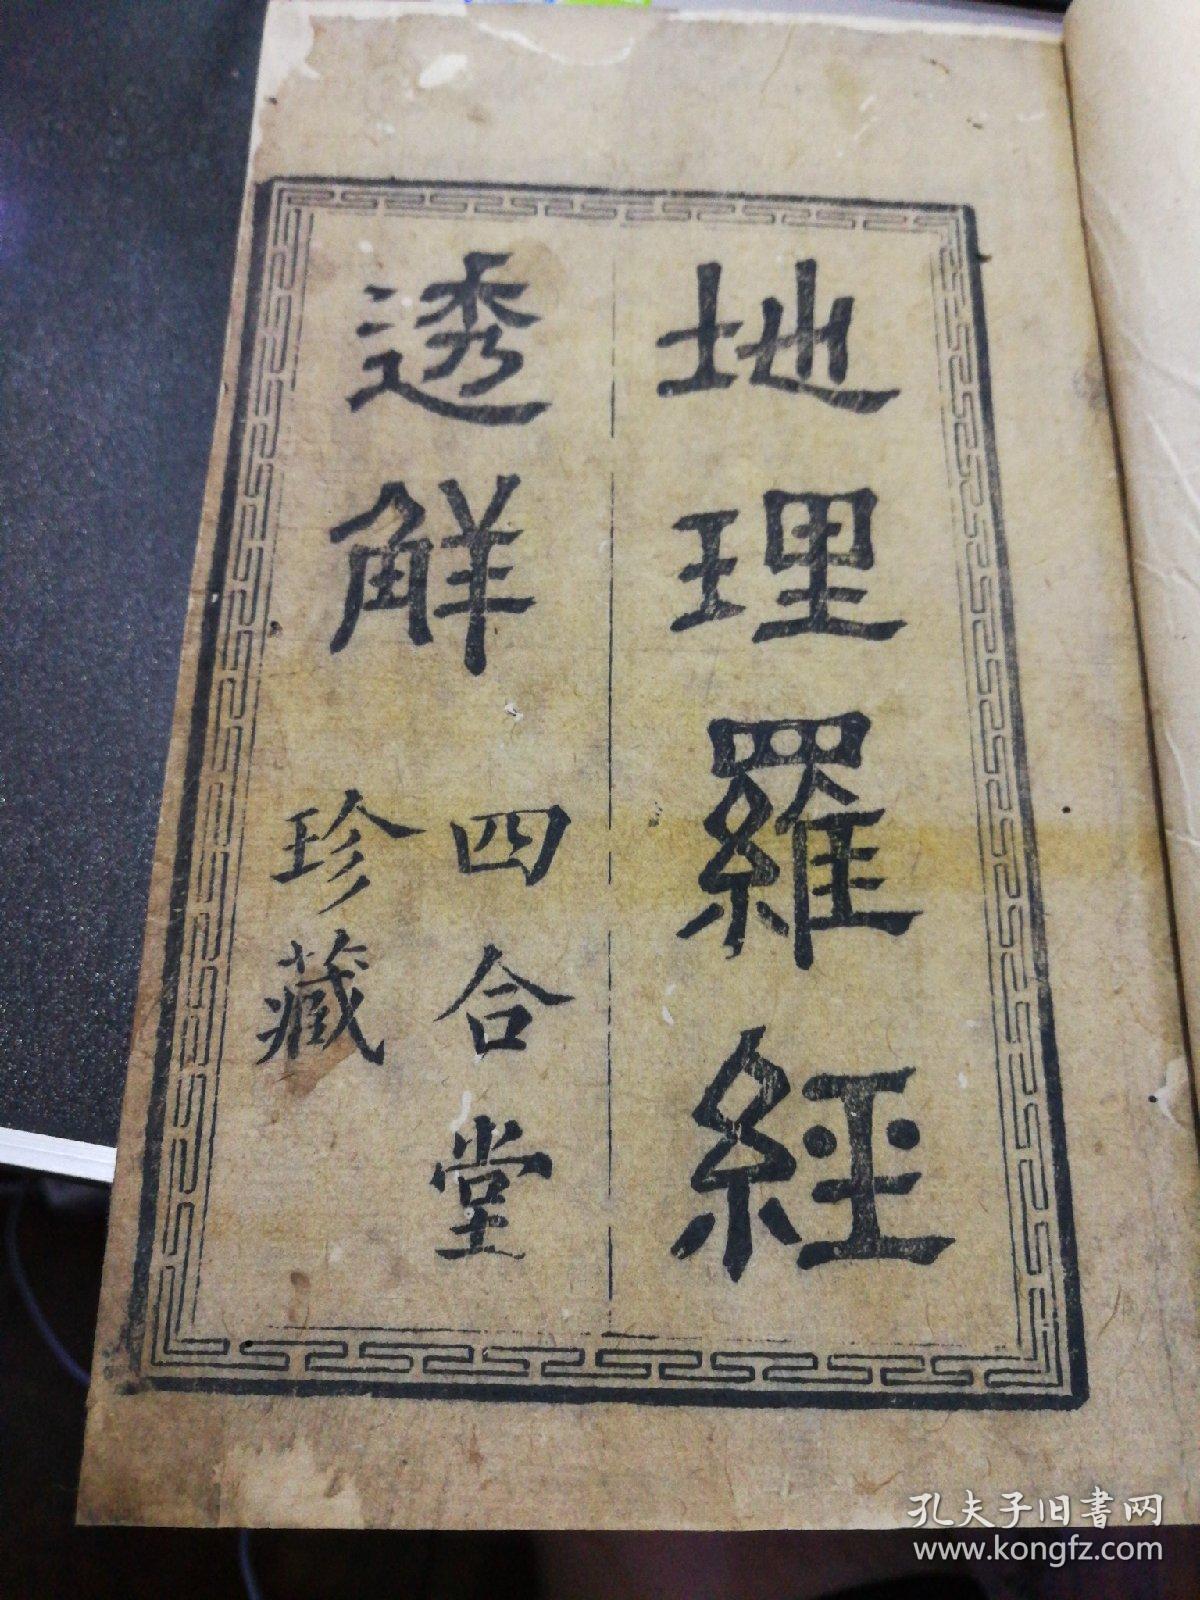 地理羅經
透解
四合堂
珍藏
孔夫子旧書网
www.kongfz.com